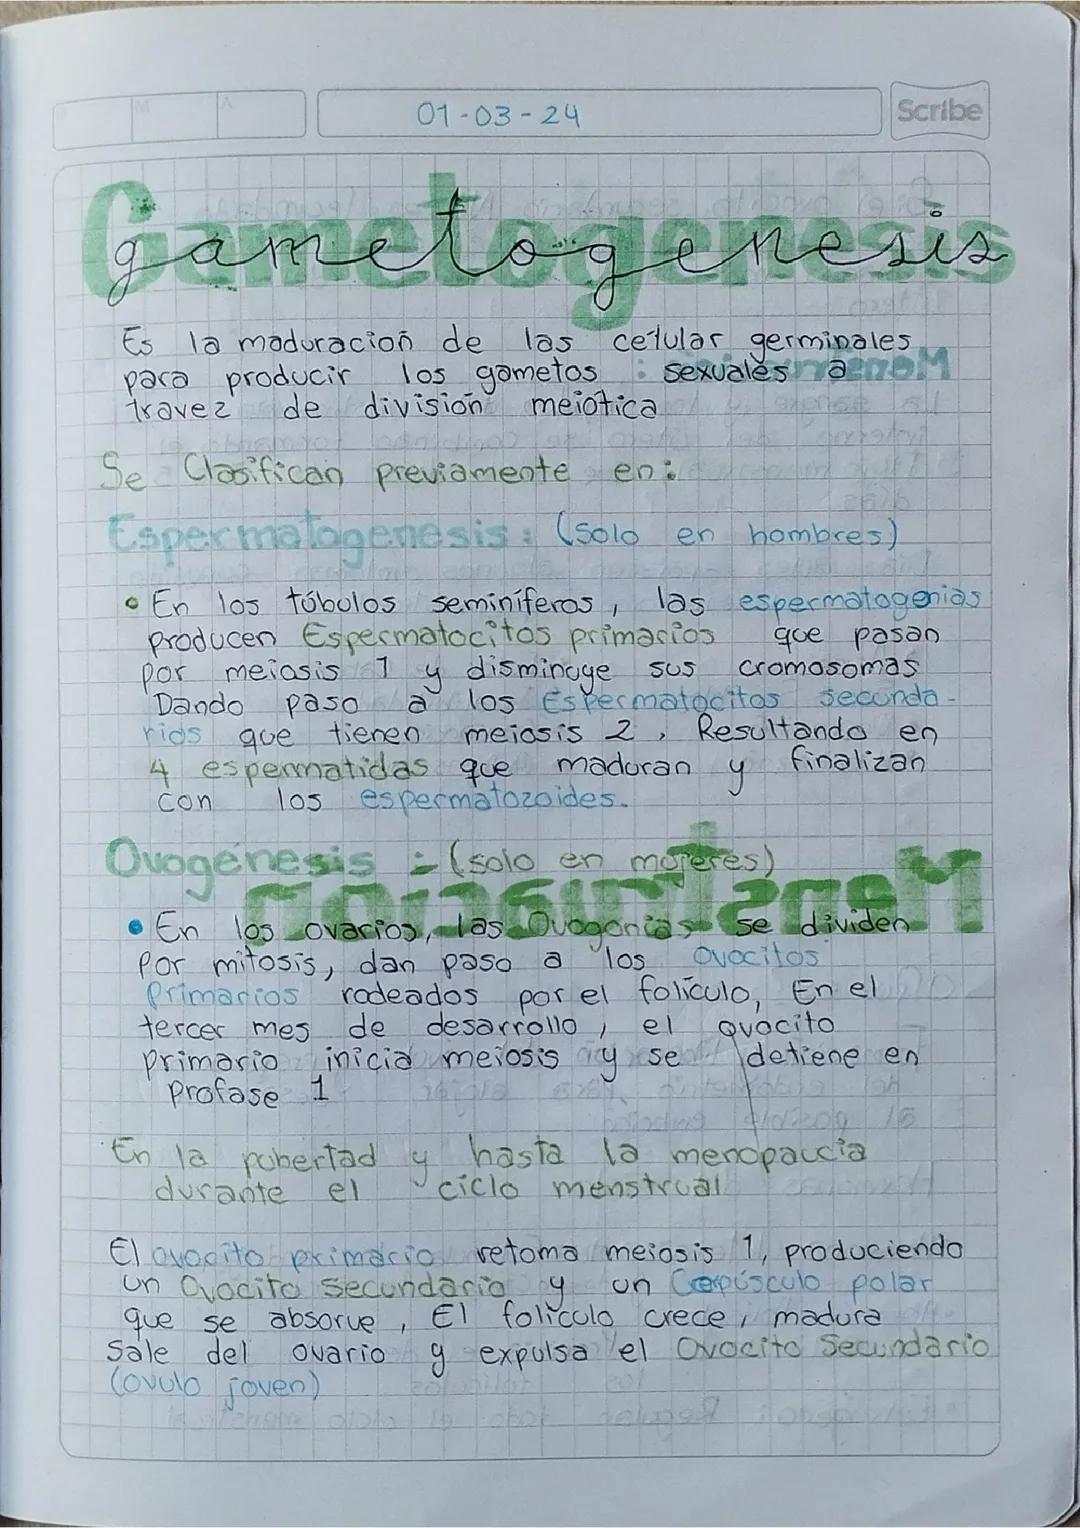 01-03-24
Scribe
Gametogenesis
Es la maduración de las celular germinales
para producir los gametos sexuales a
travez de división meiotica
Se Clasifican previamente en:
Espermatogenesis: (solo en hombres)
• En los túbulos seminíferos, las espermatogenias
producen Espermatocitos primarios que pasan
por meiosis 1 y disminuye sus cromosomas
Dando paso a los Espermatocitos secunda-
rios que tienen meiosis 2, Resultando en
4 espermatidas que maduran y finalizan
con los espermatozoides.
Ovogénesis :- (solo en mujeres)
• En los ovarios, las Ovogonias se dividen
Por mitosis, dan paso a los ovocitos
Primarios rodeados por el folículo, En el
tercer mes de desarrollo, el ovocito
primario inicia meiosis y se detiene en
Profase 1
En la pubertad y hasta la menopaucia
durante el ciclo menstrual
El ovocito primario retoma meiosis 1, produciendo
un Ovocito Secundario y un Corpúsculo polar
que se absorve, El folículo crece, madura
Sale del ovario y expulsa el Ovocito Secundario
(ovulo joven)